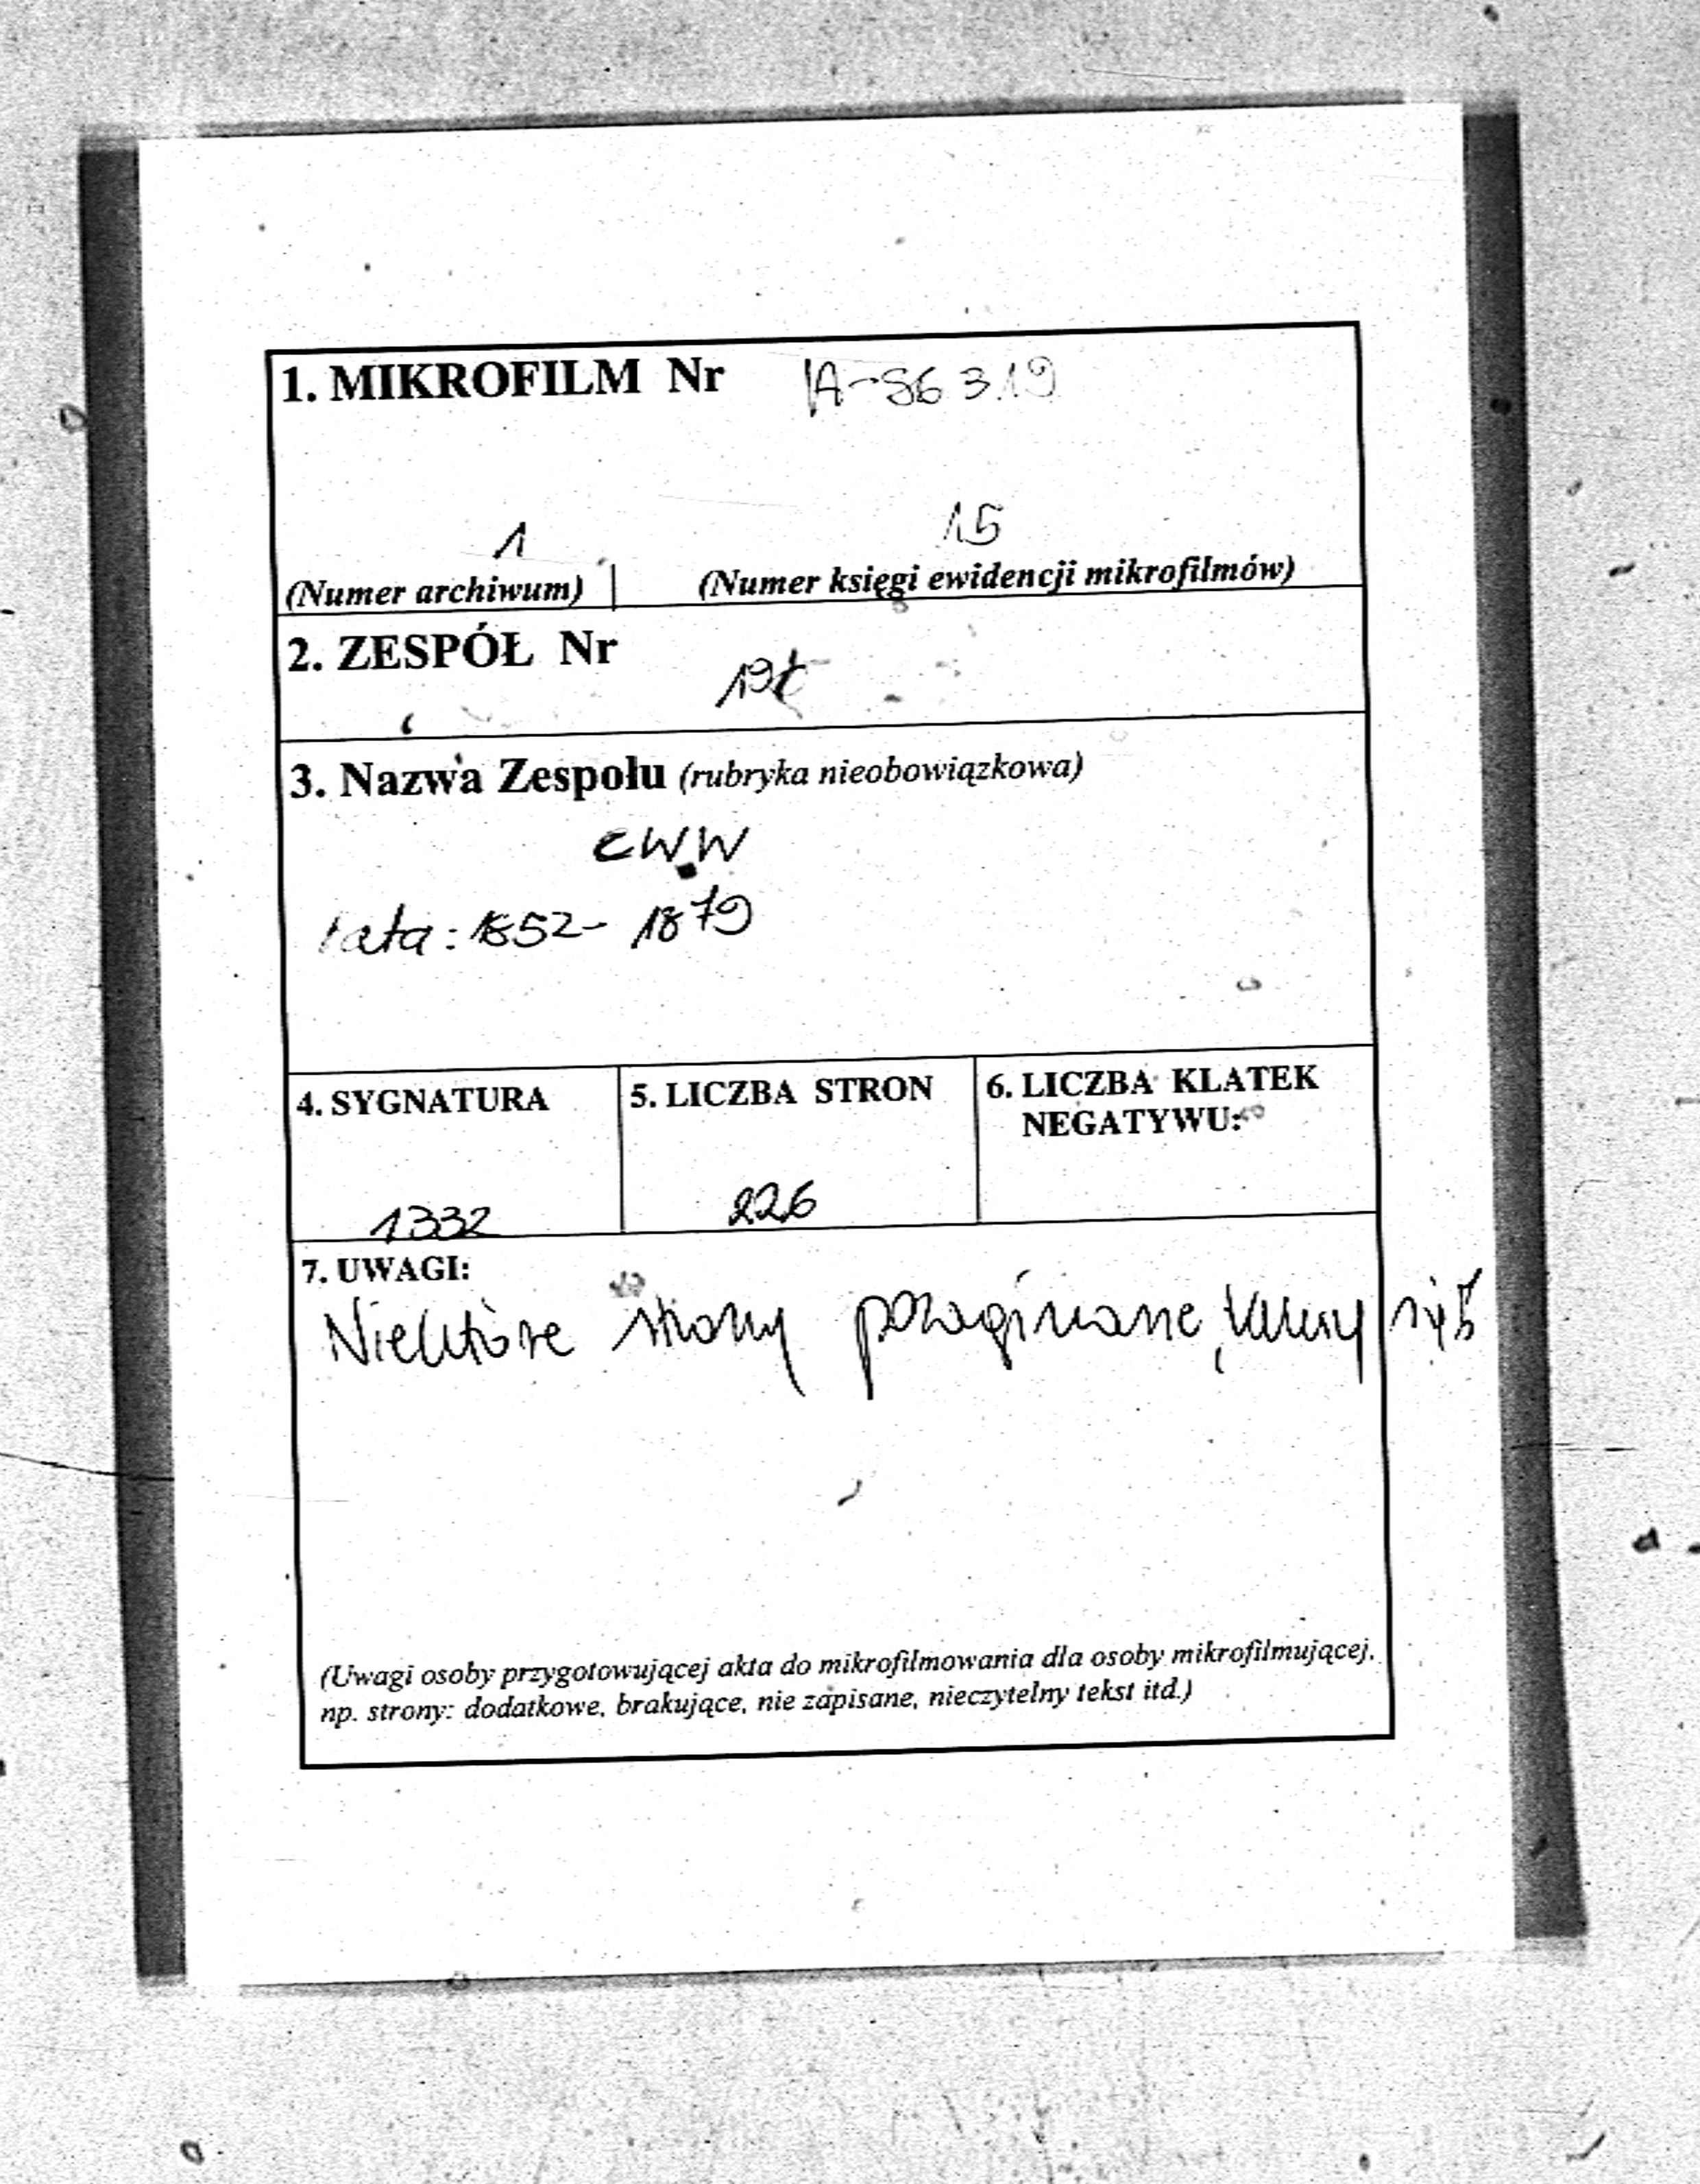 1. MIKROFILM Nr A-86319
1 15
(Numer archiwum) (Numer księgi ewidencji mikrofilmów)
2. ZESPÓŁ Nr
3. Nazwa Zespołu (rubryka nieobowiązkowa)
CWW
lata: 1852-1879
4. SYGNATURA 5. LICZBA STRON 6. LICZBA KLATEK
NEGATYWU:
1332 226
7. UWAGI:
Niektóre strony pozaginane,
(Uwagi osoby przygotowującej akta do mikrofilmowania dla osoby mikrofilmującej,
np. strony: dodatkowe, brakujące, nie zapisane, nieczytelny tekst itd.)